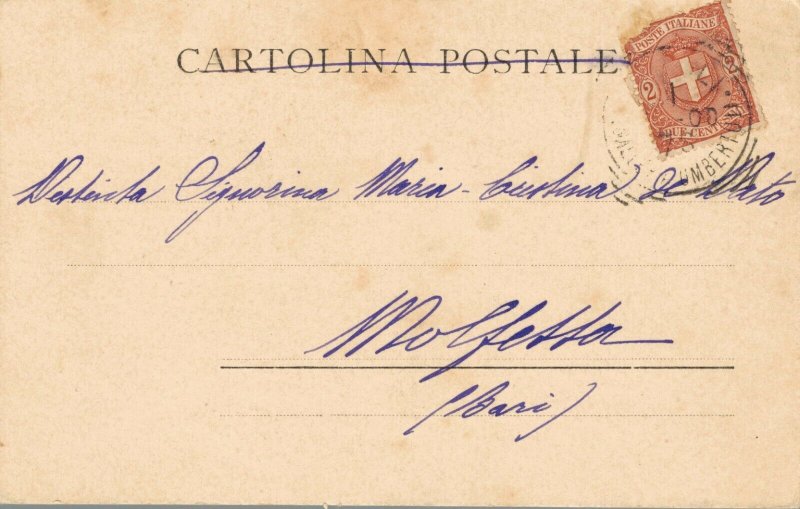 CARTOLINA POSTALE
POSTE ITALIANE
2 2
DUE CENT
UMBERTO
Distinta Signorina Maria-Cristina de
Molfetta
(Bari)